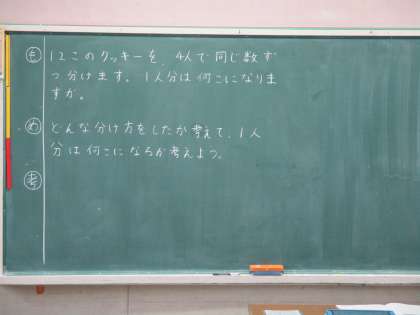 も 12このクッキーを、4人で同じ数ず
つ分けます。1人分は何こになりま
すか。
め どんな分け方をしたか考えて、1人
分は何こになるか考えよう。
考